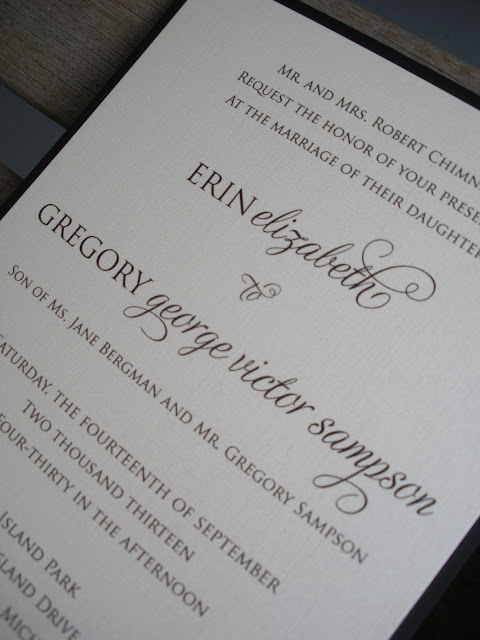 Mr. and Mrs. Robert Chimn
request the honor of your prese
at the marriage of their daughter
ERIN elizabeth
to
GREGORY george victor sampson
Son of Ms. Jane Bergman and Mr. Gregory Sampson
aturday, the fourteenth of September
Two thousand thirteen
four-thirty in the afternoon
Island Park
land Drive
Mich